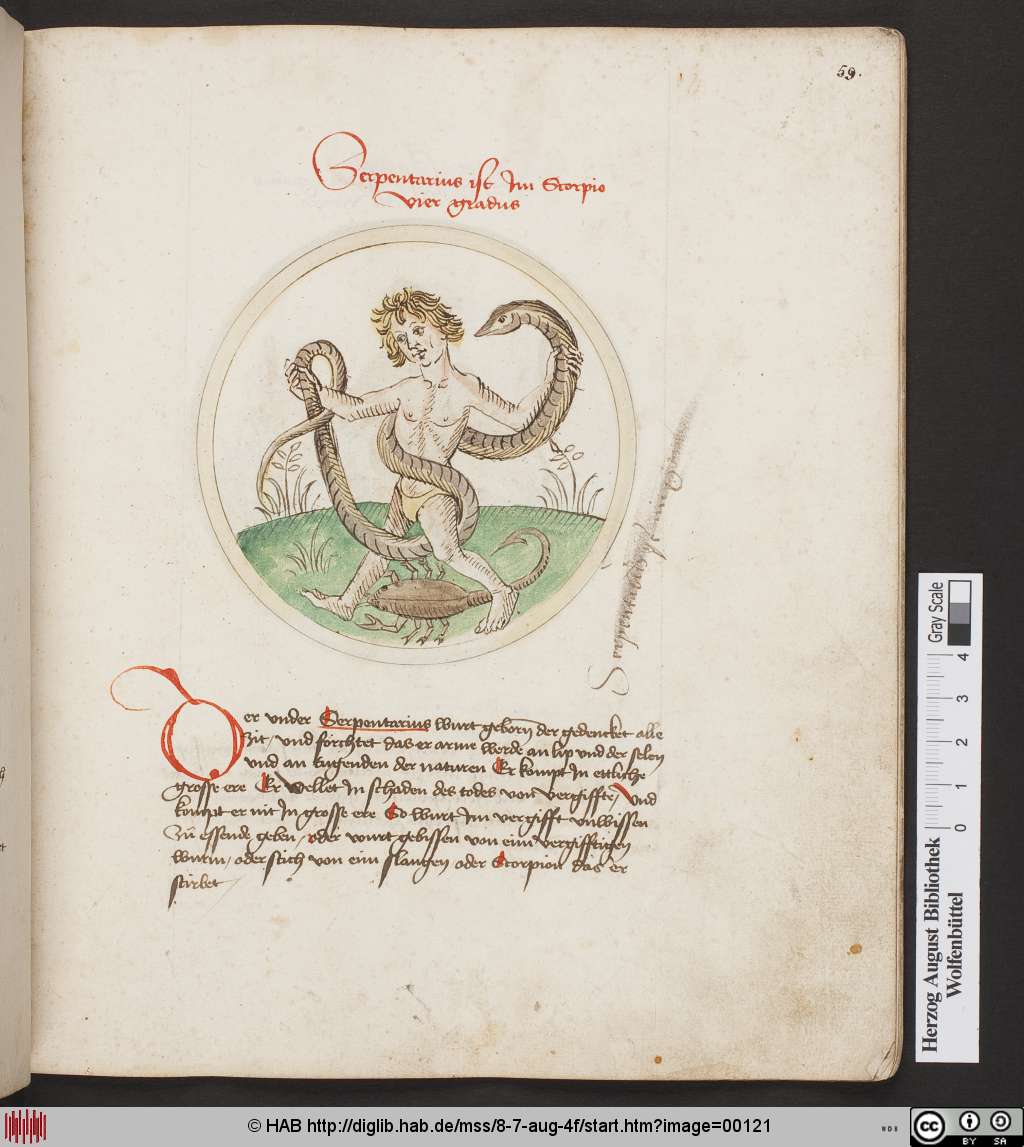 59.
Serpentarius ist Im Scorpio
vier gradus
Der vnder Serpentarius wurt geborn der gedencket alle
Zit / vnd förchtet das er arme werde an lip vnd der selen
vnd an tugenden der naturen Er kompt In ettliche
grosse ere Er wellet In schaden des todes von vergifft / Vnd
kompt er nit In grosse ere So wurt Im vergifft vnwissen
Zů essende geben / oder wurt gebissen von eim vergifftigen
wurm / oder stich von eim slangen oder Scorpion das er
stirbet
Gray Scale
0 1 2 3 4
Herzog August Bibliothek
Wolfenbüttel
© HAB http://diglib.hab.de/mss/8-7-aug-4f/start.htm?image=00121
WDB
cc BY SA